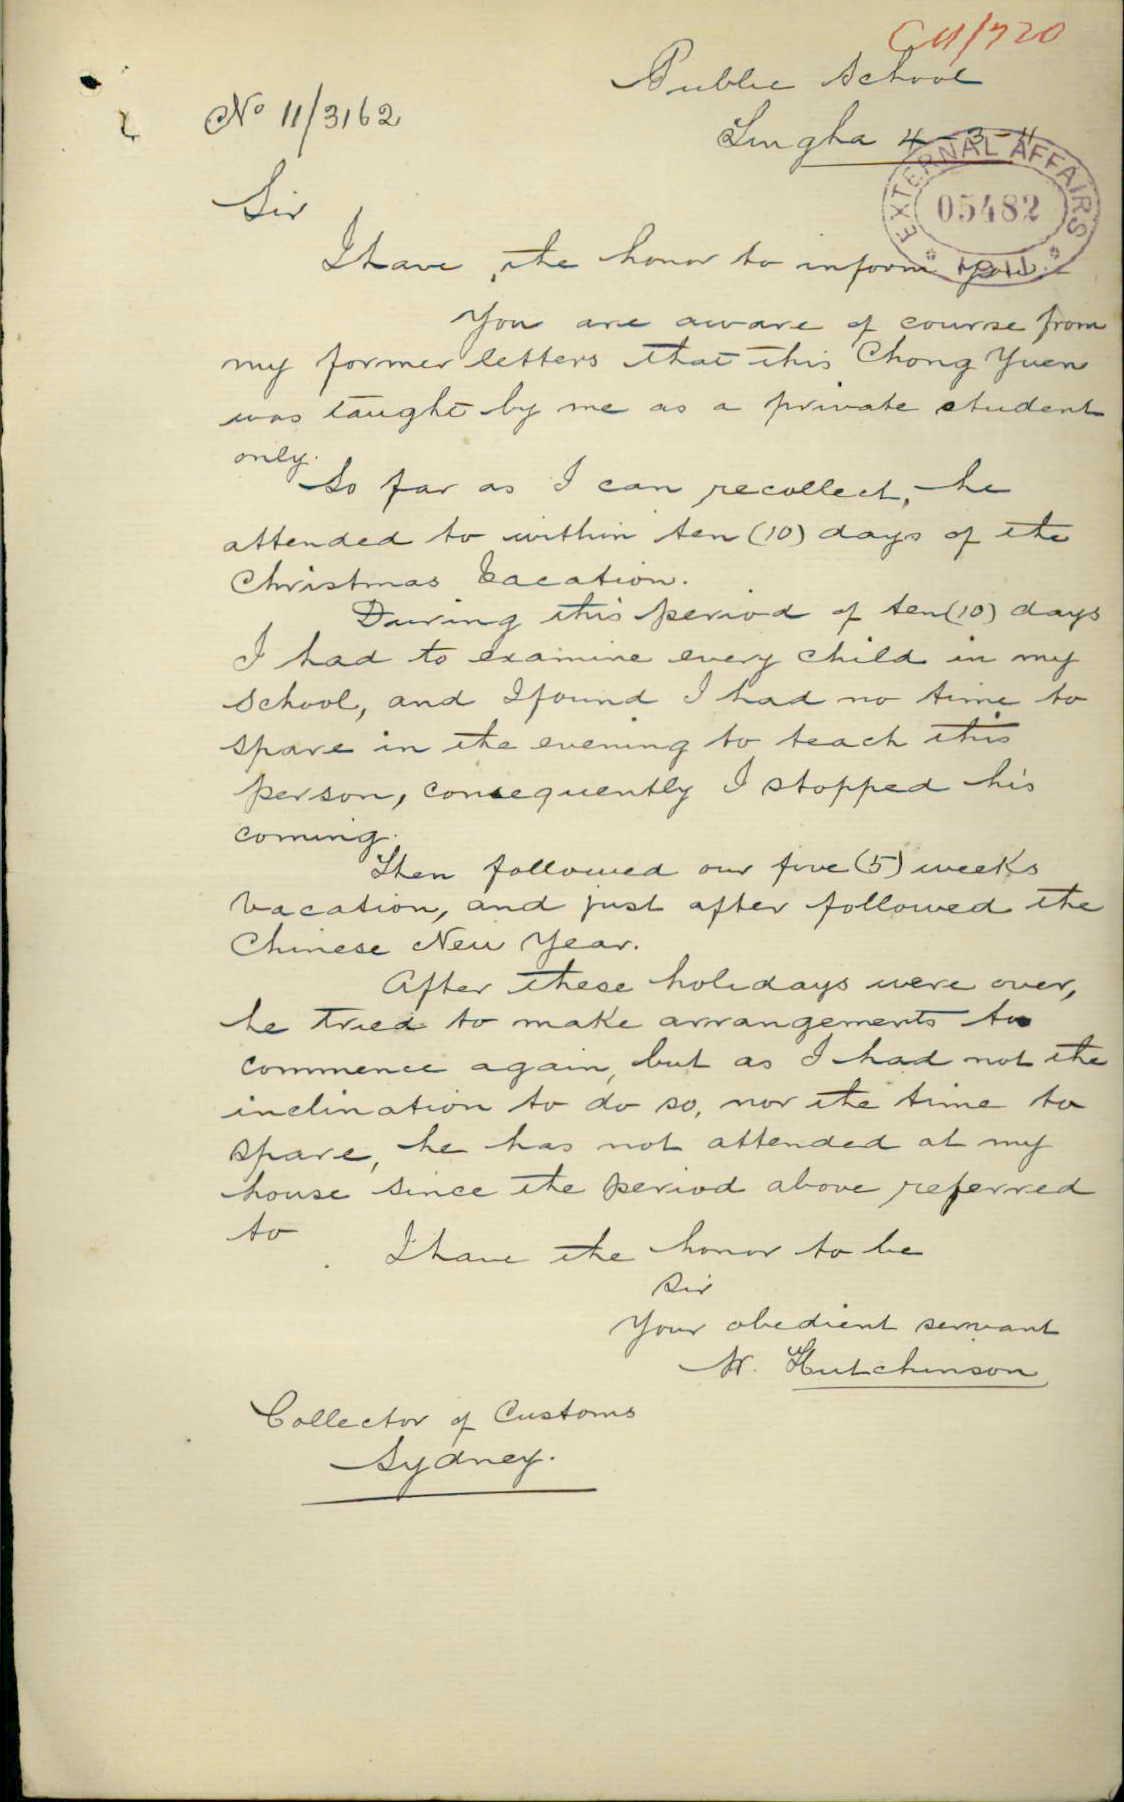 C11/720
Public School
No 11/3162
Tingha 4-3-11
EXTERNAL AFFAIRS
05482
* 1911 *
Sir
I have the honor to inform you.
You are aware of course from
my former letters that this Chong Yuen
was taught by me as a private student
only.
So far as I can recollect, he
attended to within ten (10) days of the
Christmas Vacation.
During this period of ten (10) days
I had to examine every child in my
school, and I found I had no time to
spare in the evening to teach this
person, consequently I stopped his
coming.
Then followed our five (5) weeks
Vacation, and just after followed the
Chinese New Year.
After these holidays were over,
he tried to make arrangements to
commence again, but as I had not the
inclination to do so, nor the time to
spare, he has not attended at my
house since the period above referred
to
I have the honor to be
Sir
Your obedient servant
W. Hutchinson
Collector of Customs
Sydney.